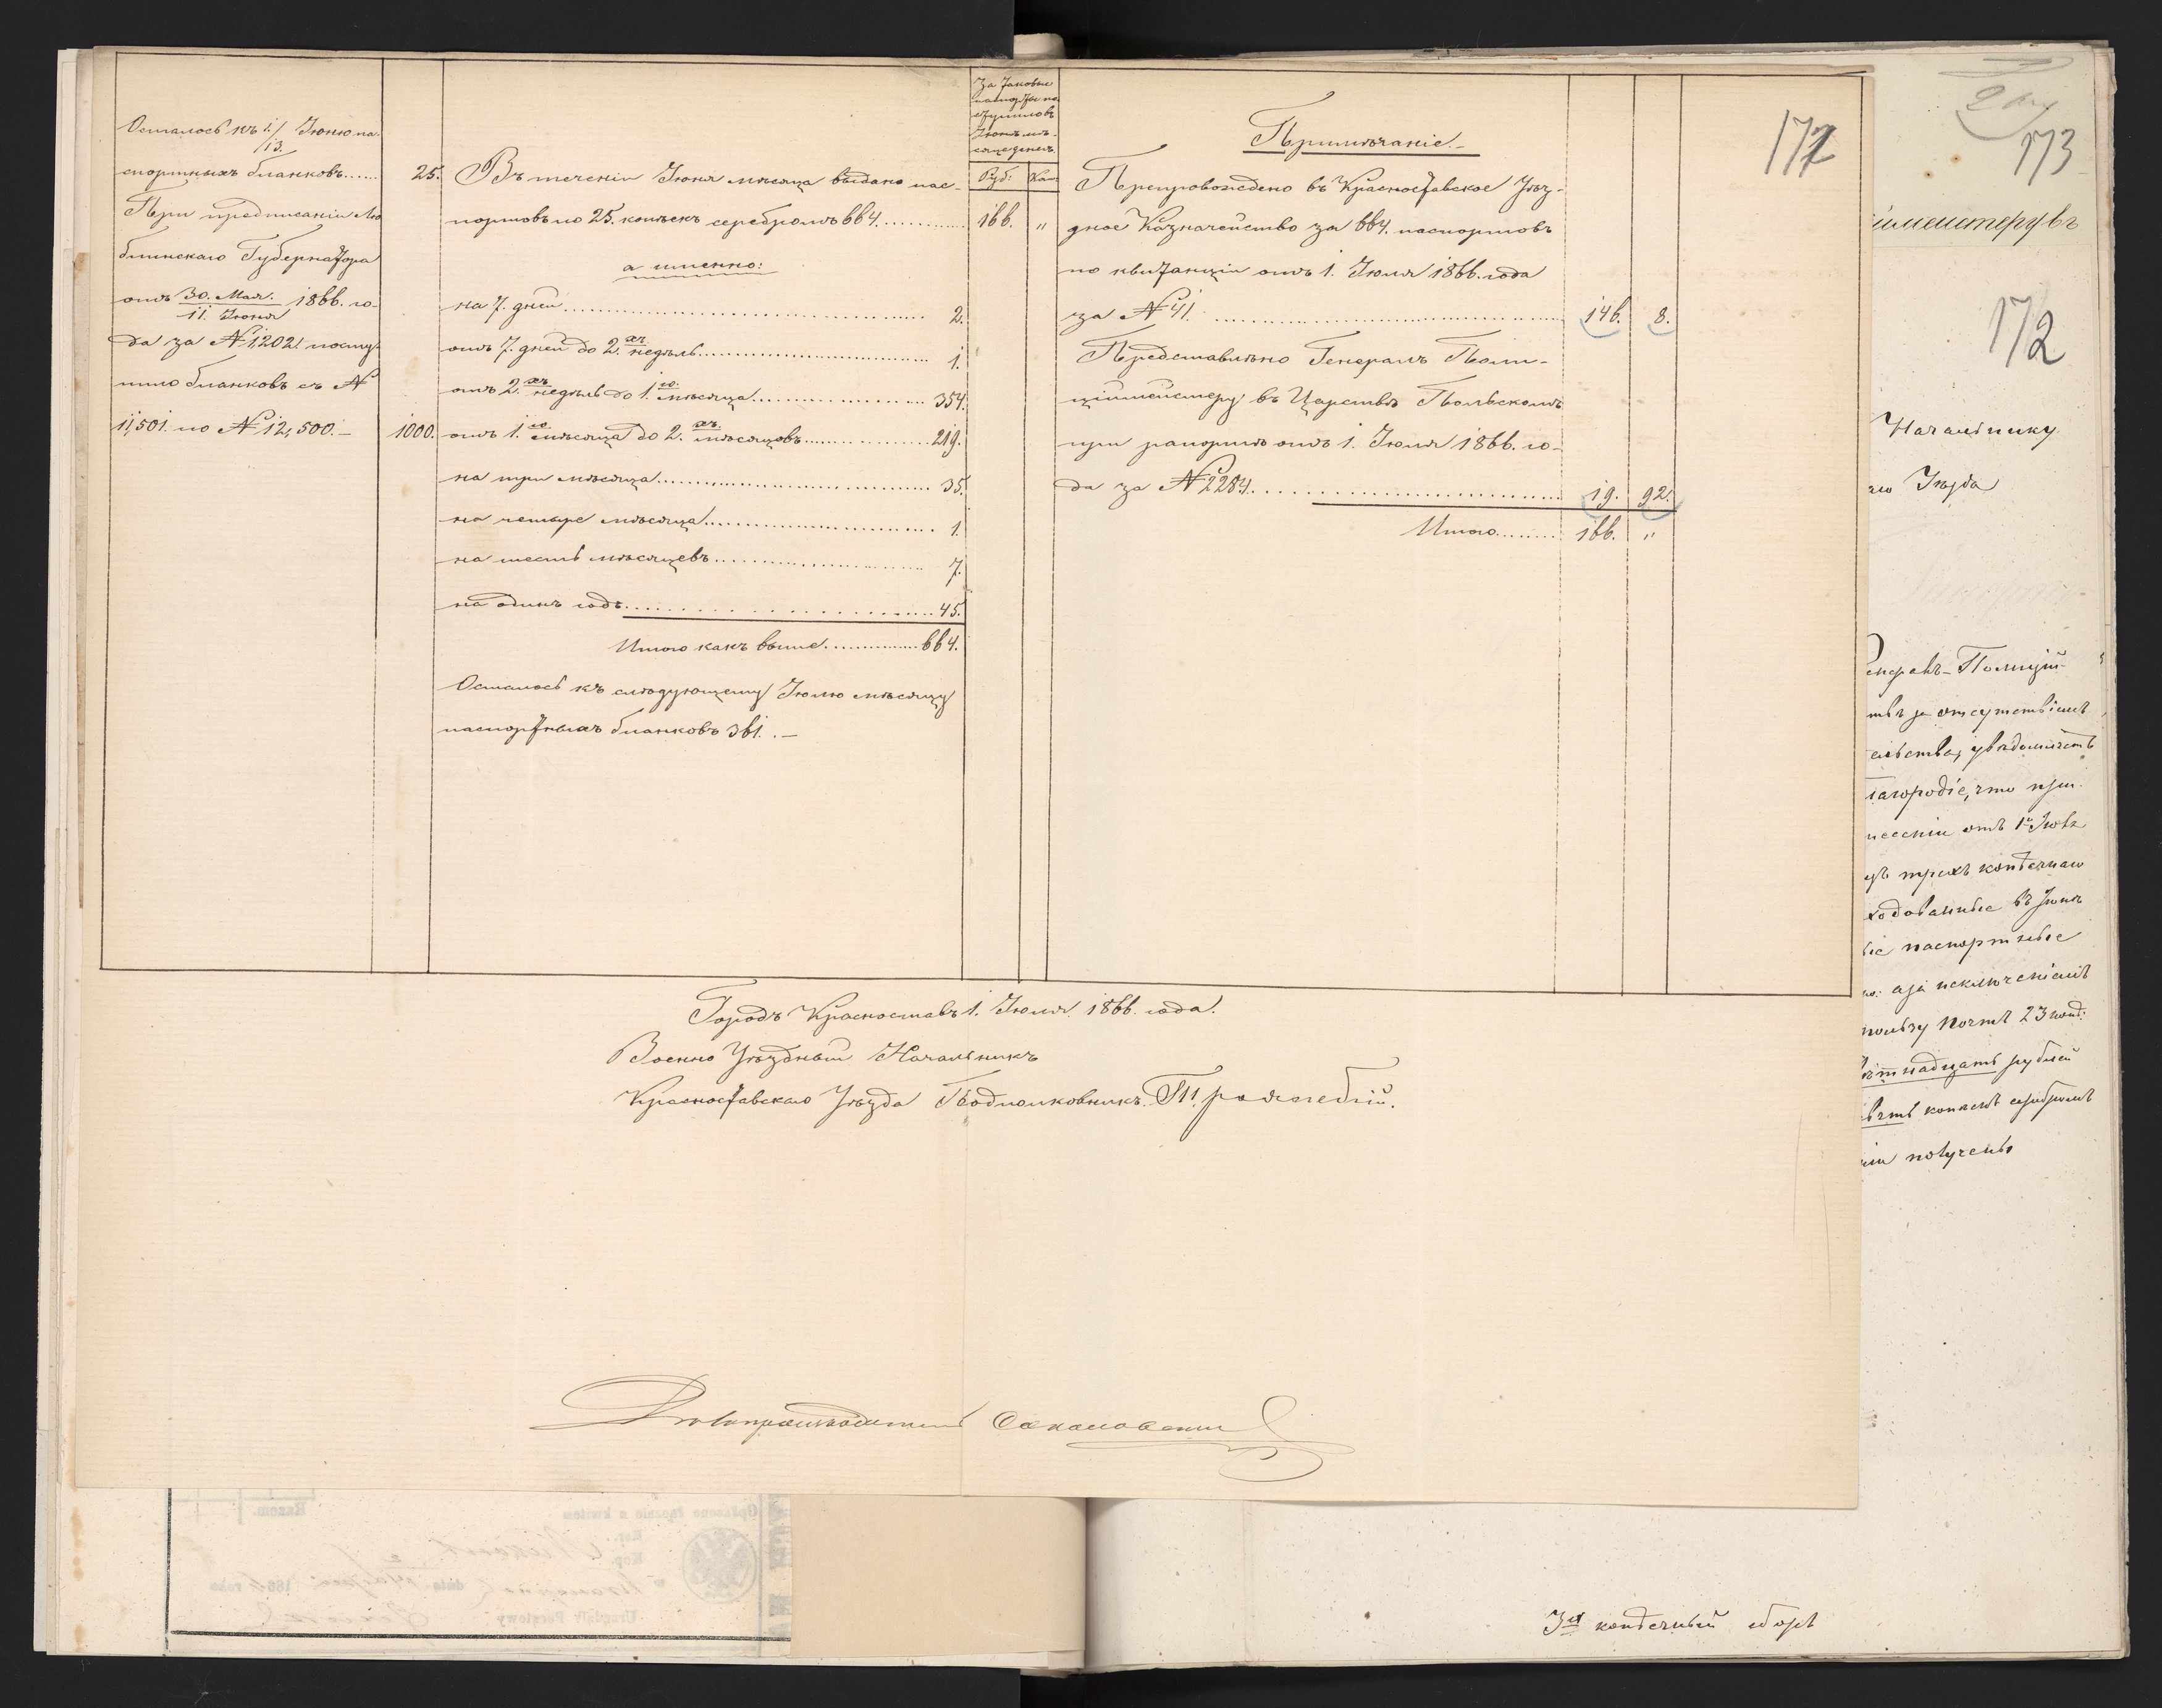 Осталось къ 1/13. Іюню па-
спортныхъ бланковъ...... 25.
При предписаніи Лю
блинскаго Губернатора
отъ 30. Мая. / 11. Іюня 1866. го-
да за № 1202 посту-
пило бланковъ съ №
11,501. по № 12,500.— 1000.
Въ теченіи Іюня мѣсяца выдано пас-
портовъ по 25. копѣекъ серебромъ 664.
а именно:
на 7. дней 2.
отъ 7. дней до 2.хъ недѣль 1.
отъ 2.хъ недѣль до 1.го мѣсяца 354.
отъ 1.го мѣсяца до 2.хъ мѣсяцовъ 219.
на три мѣсяца 35.
на четыре мѣсяца 1.
на шесть мѣсяцевъ 7.
на одинъ годъ 45.
Итого какъ выше 664.
Осталось къ слѣдующему Іюлю мѣсяцу
паспортныхъ бланковъ 361. —
За таковые
паспорты по
ступило въ
Іюнѣ мѣ-
сяце денегъ
Руб: Коп:
166. "
Примѣчаніе.—
Препровождено въ Красноставское Уѣз-
дное Казначейство за 664. паспортовъ
по квитанціи отъ 1. Іюля 1866. года
за № 41. 146. 8.
Представлено Генералъ Поли-
ціймейстеру въ Царствѣ Польскомъ
при рапортѣ отъ 1. Іюля 1866. го-
да за № 2284. 19. 92.
Итого 166. "
172
Городъ Красноставъ 1. Іюля 1866. года.
Военно Уѣздный Начальникъ
Красноставскаго Уѣзда Подполковникъ
Дѣлопроизводитель
173
172
Начальнику
Уѣзда
Полицій-
за отсутствіемъ
увѣдомляетъ
что при
отъ 1го
трехъ копѣечнаго
паспортные
исключеніемъ
пользу почтъ 23 коп:
рублей
копѣекъ серебромъ
получены
3хъ копѣечный сборъ